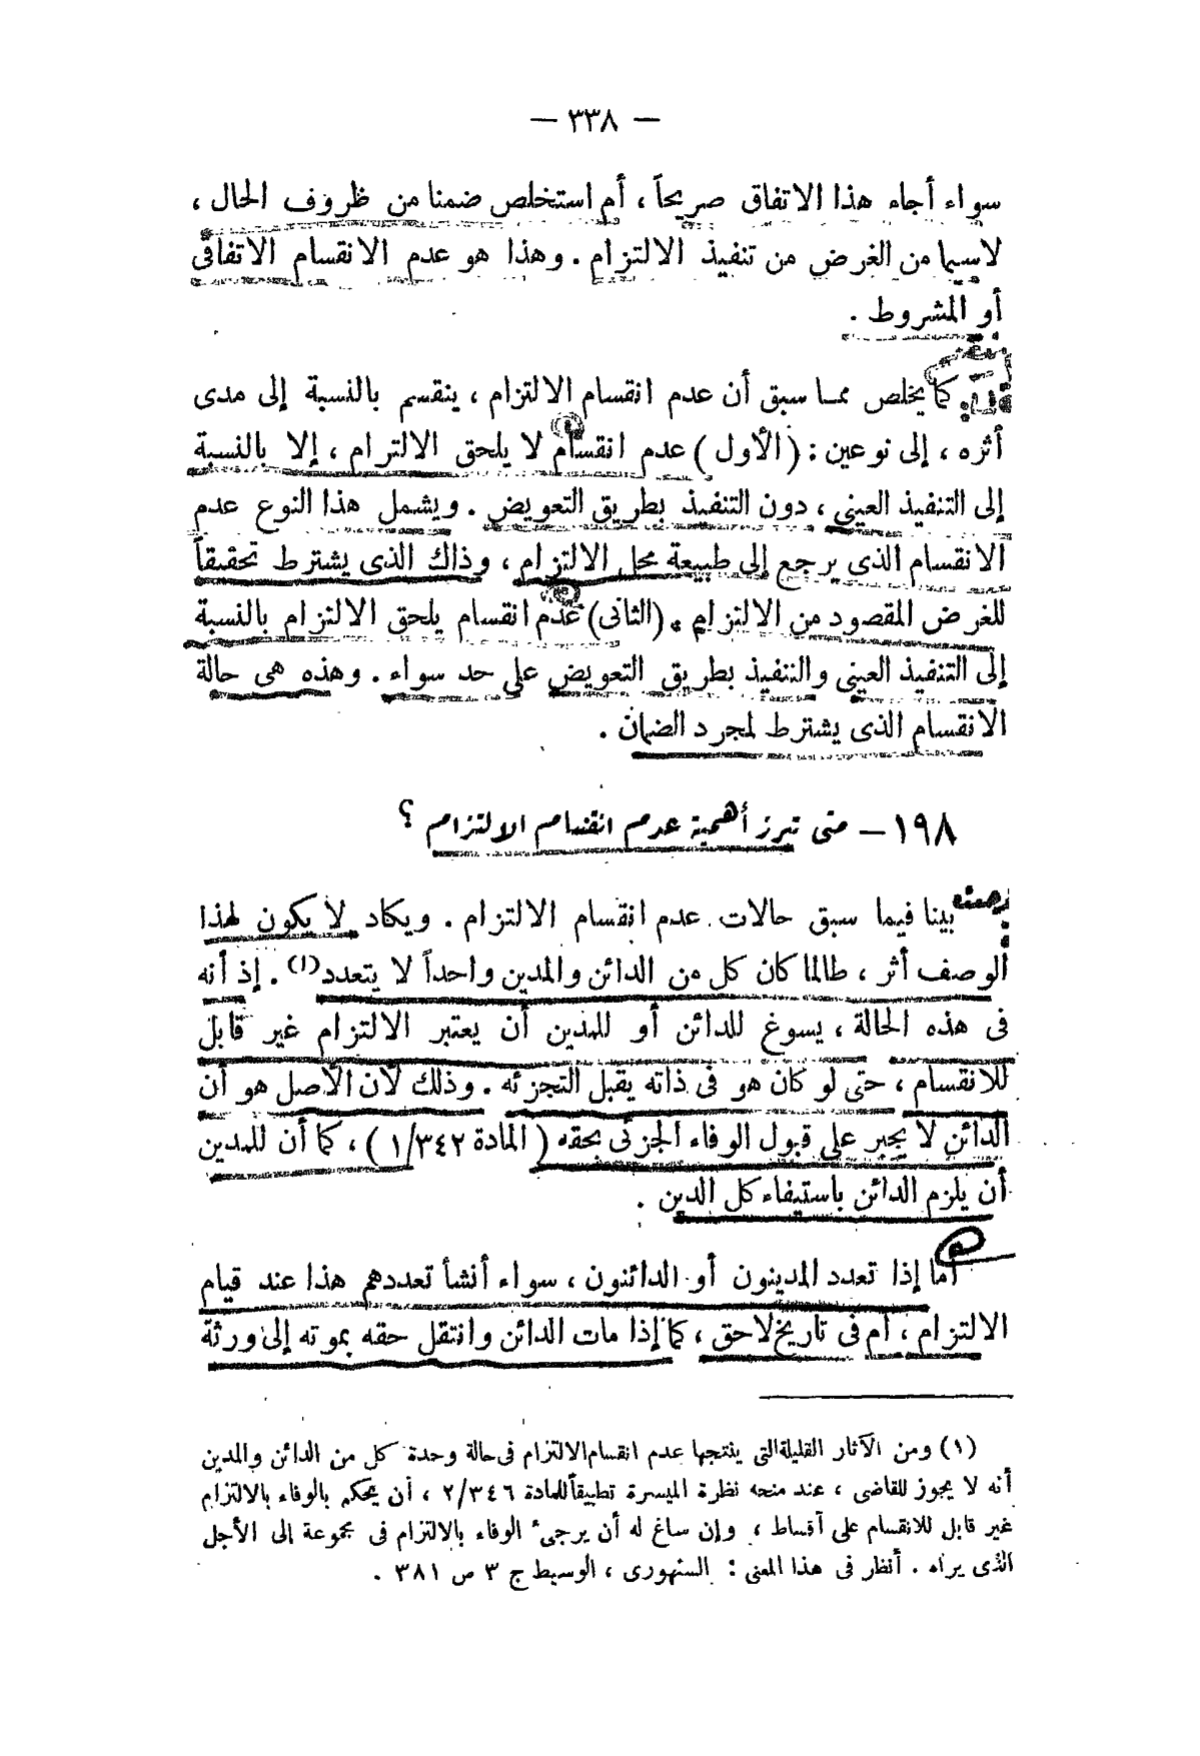 — ٣٣٨ —
سواء أجاء هذا الاتفاق صريحاً ، أم استخلص ضمنا من ظروف الحال ،
لاسيما من الغرض من تنفيذ الالتزام . وهذا هو عدم الانقسام الاتفاقى
أو المشروط .
كما يخلص مما سبق أن عدم انقسام الالتزام ، ينقسم بالنسبة إلى مدى
أثره ، إلى نوعين : ( الأول ) عدم انقسام لا يلحق الالتزام ، إلا بالنسبة
إلى التنفيذ العينى ، دون التنفيذ بطريق التعويض . ويشمل هذا النوع عدم
الانقسام الذى يرجع إلى طبيعة محل الالتزام ، وذاك الذى يشترط تحقيقاً
للغرض المقصود من الالتزام . (الثانى) عدم انقسام يلحق الالتزام بالنسبة
إلى التنفيذ العينى والتنفيذ بطريق التعويض على حد سواء . وهذه هى حالة
الانقسام الذى يشترط لمجرد الضمان .
١٩٨ – متى تبرز أهمية عدم انقسام الالتزام ؟
بينا فيما سبق حالات عدم انقسام الالتزام . ويكاد لا يكون لهذا
الوصف أثر ، طالما كان كل من الدائن والمدين واحداً لا يتعدد(١) . إذ أنه
فى هذه الحالة ، يسوغ للدائن أو للمدين أن يعتبر الالتزام غير قابل
للانقسام ، حتى لو كان هو فى ذاته يقبل التجزئه . وذلك لأن الأصل هو أن
الدائن لا يجبر على قبول الوفاء الجزئى بحقه ( المادة ١/٣٤٢ ) ، كما أن للمدين
أن يلزم الدائن باستيفاء كل الدين .
أما إذا تعدد المدينون أو الدائنون ، سواء أنشأ تعددهم هذا عند قيام
الالتزام ، أم فى تاريخ لاحق ، كما إذا مات الدائن وانتقل حقه بموته إلى ورثة
(١) ومن الآثار القليلة التى ينتجها عدم انقسام الالتزام فى حالة وحدة كل من الدائن والمدين
أنه لا يجوز للقاضى ، عند منحه نظرة الميسرة تطبيقاً للمادة ٢/٣٤٦ ، أن يحكم بالوفاء بالالتزام
غير قابل للانقسام على أقساط ، وإن ساغ له أن يرجىء الوفاء بالالتزام فى مجموعة إلى الأجل
الذى يراه . أنظر فى هذا المعنى : السنهورى ، الوسيط ج ٣ ص ٣٨١ .